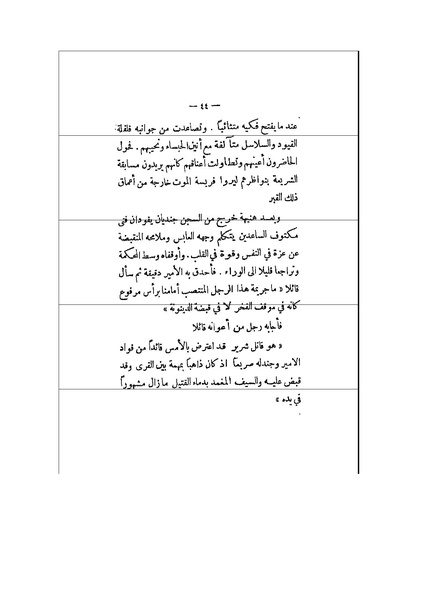 — ٤٤ —
عند ما يفتح فكيه متثائباً . وتصاعدت من جوانبه قلقلة
القيود والسلاسل متآلفة مع أنين الحبساء ونحيبهم . فحول
الحاضرون أعينهم وتطاولت أعناقهم كأنهم يريدون مسابقة
الشريعة بنواظرهم ليروا فريسة الموت خارجة من أعماق
ذلك القبر
وبعد هنيهة خرج من السجن جنديان يقودان فتى
مكتوف الساعدين يتكلم وجهه العابس وملامحه المنقبضة
عن عزة في النفس وقوة في القلب . وأوقفاه وسط المحكمة
وتراجعا قليلا الى الوراء . فأحدق به الأمير دقيقة ثم سأل
قائلا « ما جريمة هذا الرجل المنتصب أمامنا برأس مرفوع
كانه في موقف الفخر لا في قبضة الدينونة »
فأجابه رجل من أعوانه قائلا
« هو قاتل شرير قد اعترض بالأمس قائداً من قواد
الامير وجندله صريعاً اذ كان ذاهباً بمهمة بين القرى وقد
قبض عليه والسيف المغمد بدماء القتيل ما زال مشهوراً
في يده »